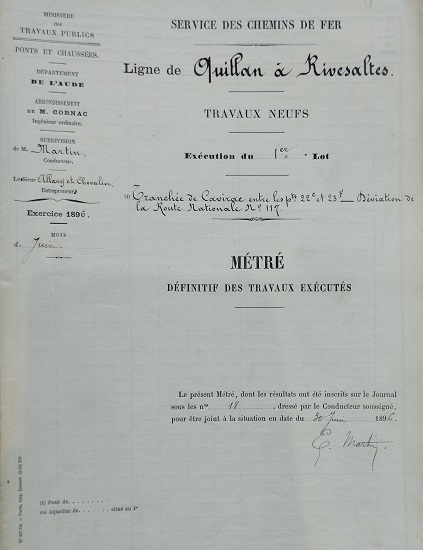 MINISTÈRE
des
TRAVAUX PUBLICS
PONTS ET CHAUSSÉES
DÉPARTEMENT
DE L'AUDE
ARRONDISSEMENT
DE M. CORNAC
Ingénieur ordinaire.
SUBDIVISION
de M. Martin,
Conducteur.
Allary et Chevalin,
Entrepreneur
Exercice 1896.
MOIS
de Juin
SERVICE DES CHEMINS DE FER
Ligne de Quillan à Rivesaltes.
TRAVAUX NEUFS
Exécution du 1er Lot
(1) Tranchée de Cavirac entre les pts 22c et 23f Déviation de
la Route Nationale No 117.
MÉTRÉ
DÉFINITIF DES TRAVAUX EXÉCUTÉS
Le présent Métré, dont les résultats ont été inscrits sur le Journal
sous les nos 18 , dressé par le Conducteur soussigné,
pour être joint à la situation en date du 30 Juin 1896.
Martin
(1) Pont de . . . . . . . .
ou Aqueduc de . . . . . . , situé au P